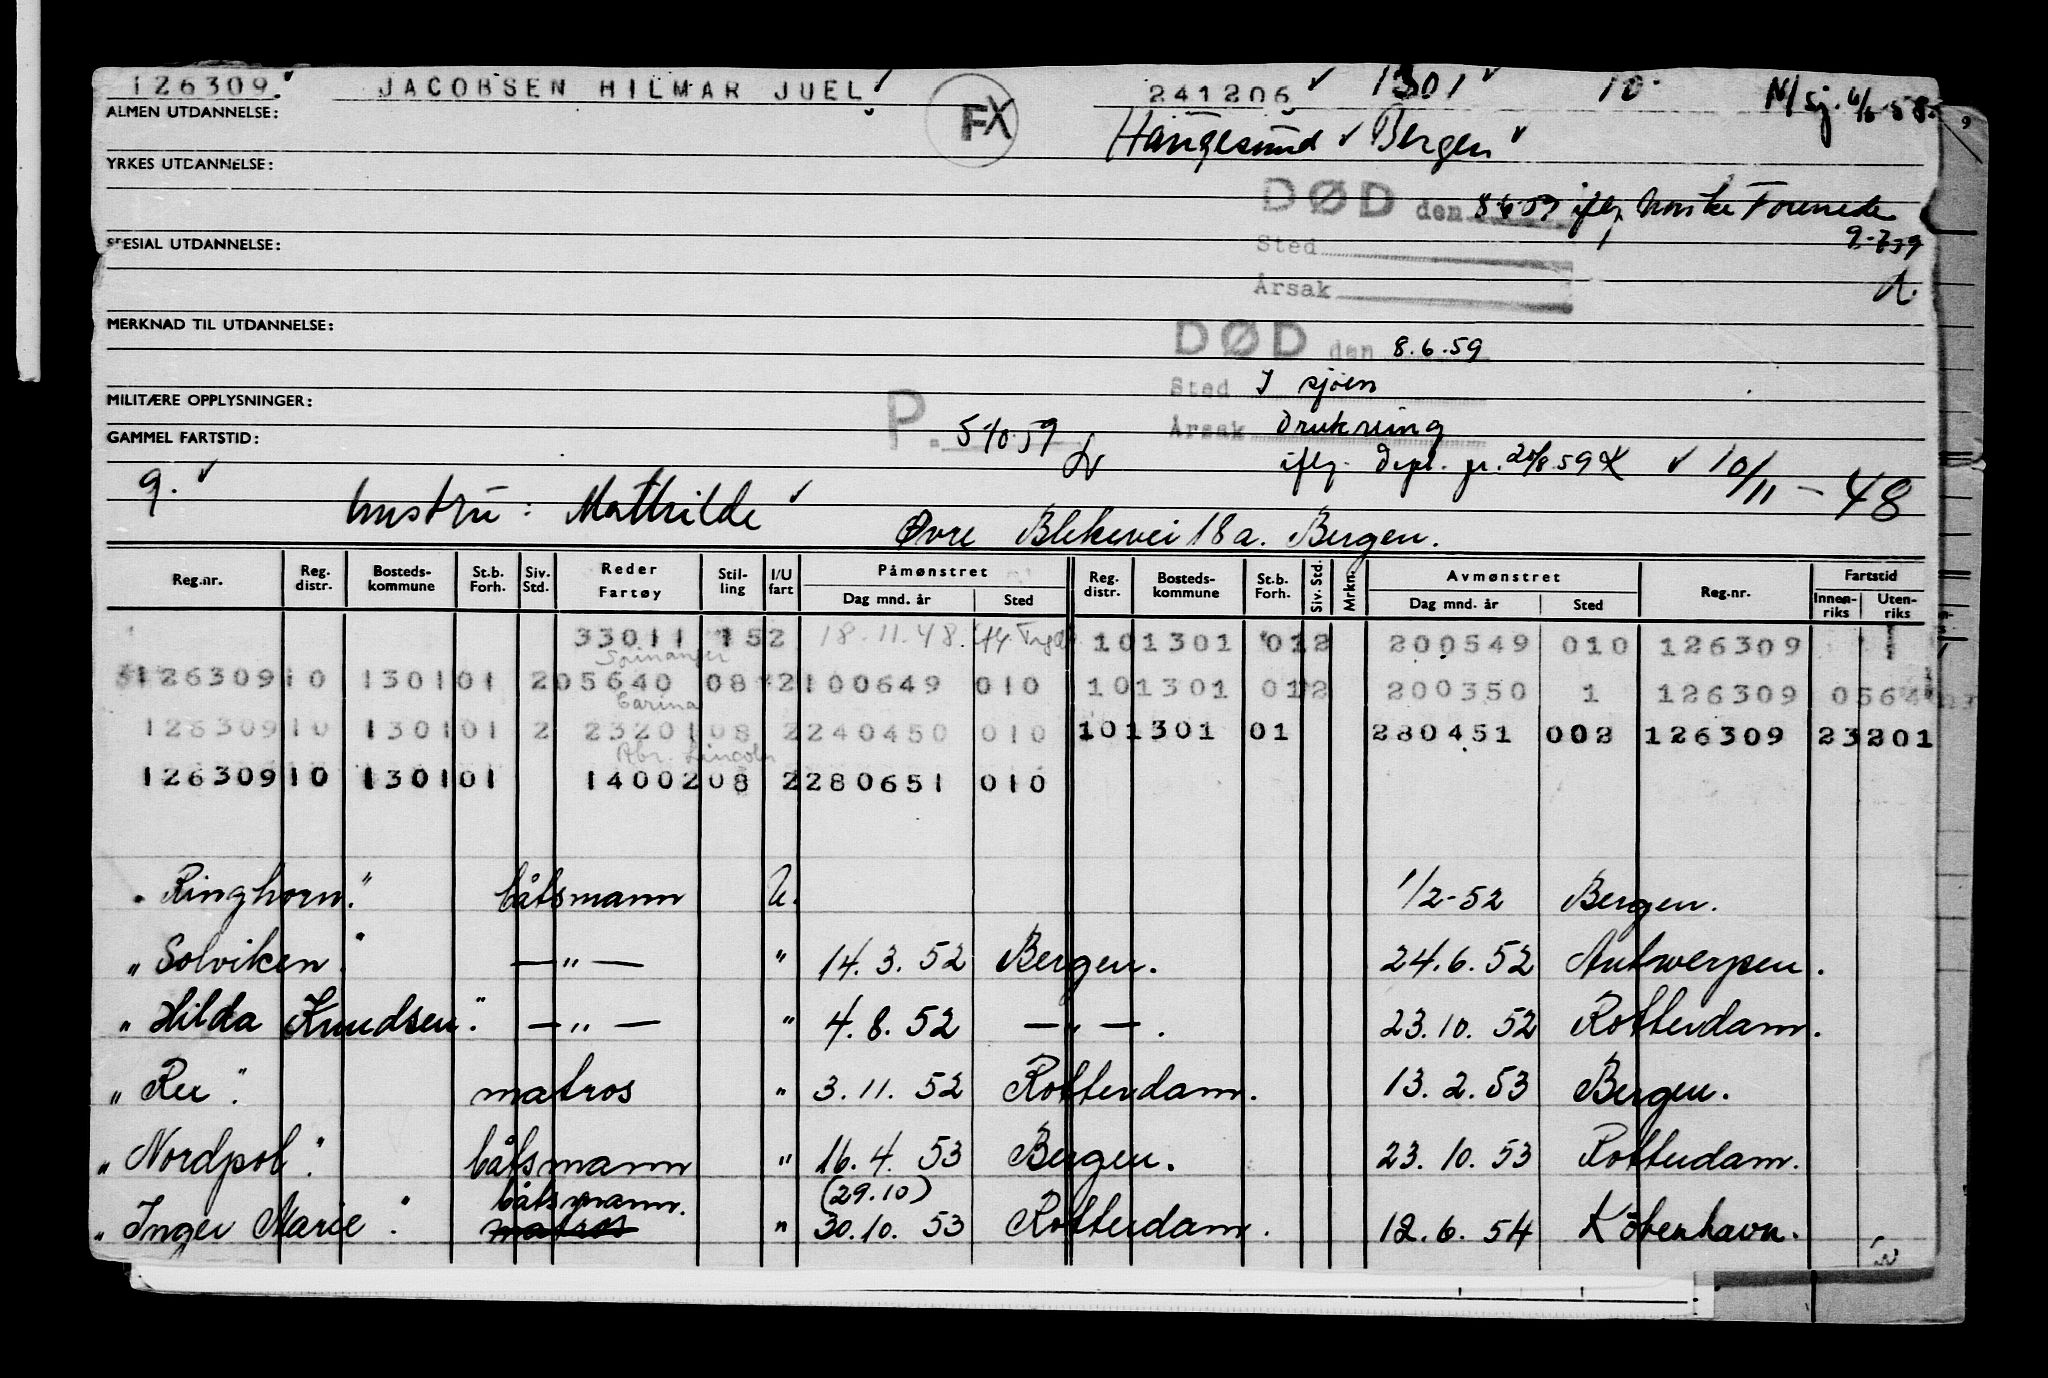 126309. JACOBSEN HILMAR JUEL 241206 1301 10
FX
ALMEN UTDANNELSE:
Haugesund Bergen
YRKES UTDANNELSE:
DØD den 8.6.59 iflg. Norske Forenede
9.7.59
SPESIAL UTDANNELSE:
Sted
Årsak
MERKNAD TIL UTDANNELSE:
DØD den 8.6.59
Sted I sjøen
MILITÆRE OPPLYSNINGER:
Årsak Drukning
P. 5/10.59
GAMMEL FARTSTID:
iflg. Dept. pr. 20/8.59 10/11-48
9. hustru: Mathilde
Øvre Blekevei 18a. Bergen.
Reg.nr. Reg. distr. Bosteds-kommune St.b. Forh. Siv. Std. Reder Fartøy Stil-ling I/U fart Påmønstret Dag mnd. år Sted Reg. distr. Bosteds-kommune St.b. Forh. Siv. Std. Mrkn. Avmønstret Dag mnd. år Sted Reg.nr. Fartstid Innen-riks Uten-riks
33011 152 18.11.48. 101301 012 200549 010 126309
Spinanger
126309 10 1301 01 2 05640 08 2 100649 010 101301 012 200350 1 126309 0564
Carina
126309 10 1301 01 2 23201 08 2 240450 010 101301 01 280451 002 126309 23201
Abr. Lincoln
126309 10 1301 01 14002 08 2 280651 010
"Ringhorn." båtsmann U. 1/2-52 Bergen.
"Solviken." —"— " 14.3.52 Bergen. 24.6.52 Antwerpen.
"Hilda Knudsen." —"— " 4.8.52 —"—. 23.10.52 Rotterdam.
"Reu". matros " 3.11.52 Rotterdam. 13.2.53 Bergen.
"Nordpol". båtsmann " 16.4.53 Bergen. 23.10.53 Rotterdam.
båtsmann. (29.10)
"Inger Marie". matros " 30.10.53 Rotterdam. 12.6.54 Köbenhavn.